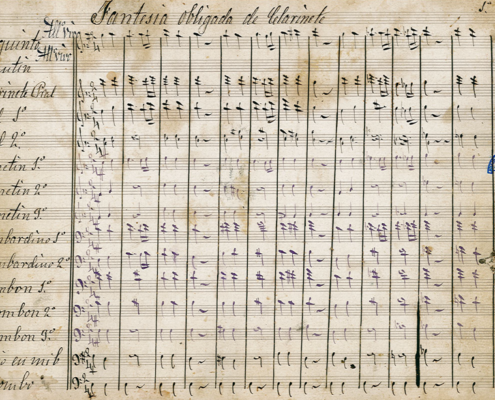 Fantesia obligada de Clarinete
5.
All vivo
quinto
All vivo
utin
rinete Pral
1º
2º
netin 1º
netin 2º
netin 3º
mbardino 1º
mbardino 2º
mbon 1º
ombon 2º
mbon 3º
en mib
ombo